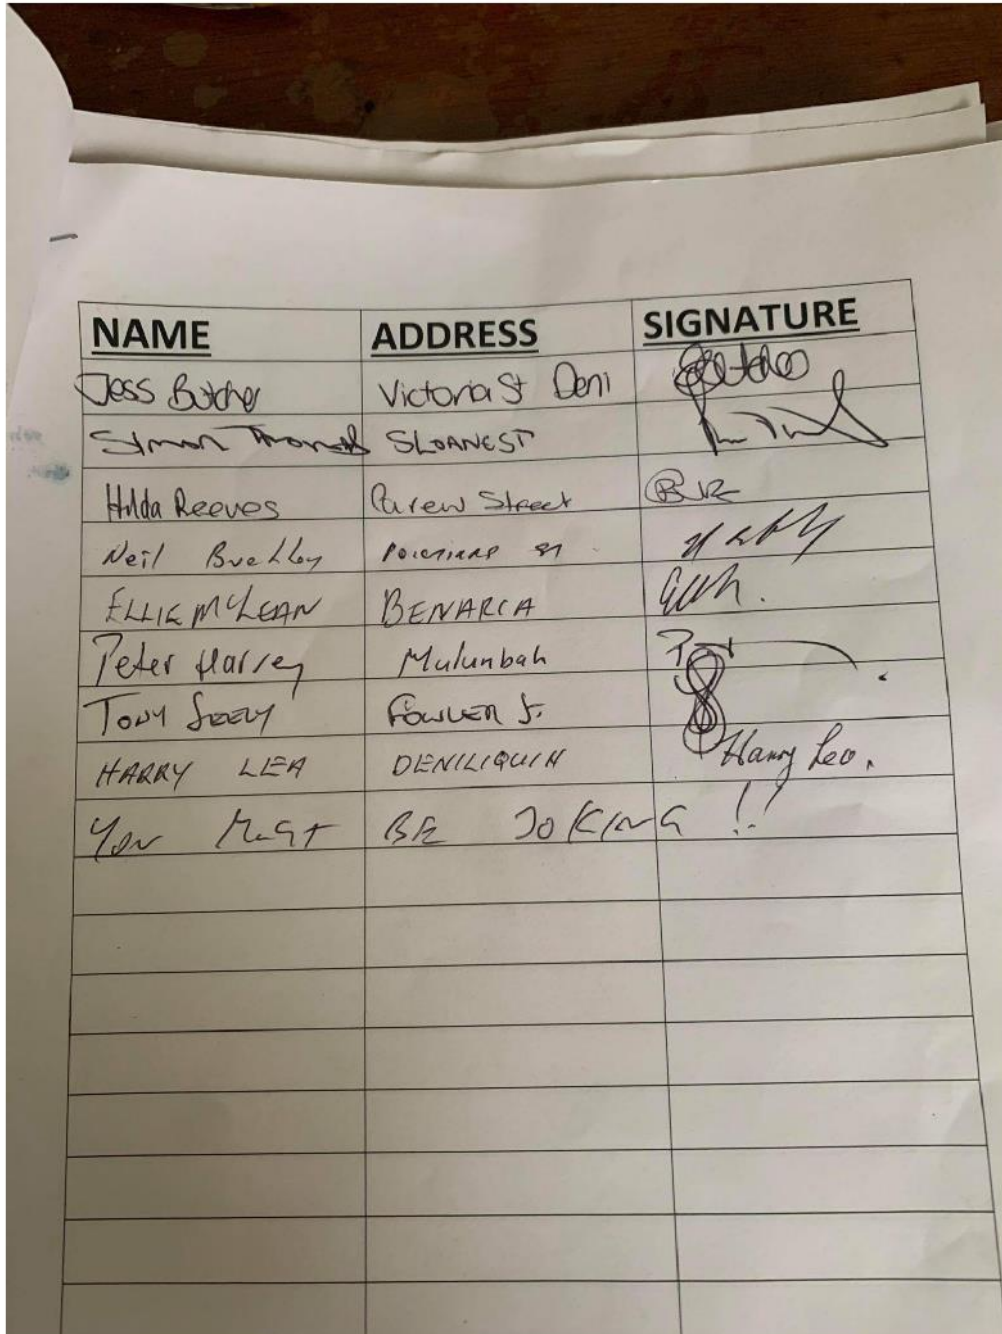 NAME ADDRESS SIGNATURE
Jess Butcher Victoria St Deni
Simon Thomas SLOANE ST
Hilda Reeves Carew Street
Neil Buckley st
ELLIE McLEAN BENARCA
Peter Harvey Mulunbah
TONY SEELY FOWLER St.
HARRY LEA DENILIQUIN Harry Lea.
YOU MUST BE JOKING !!